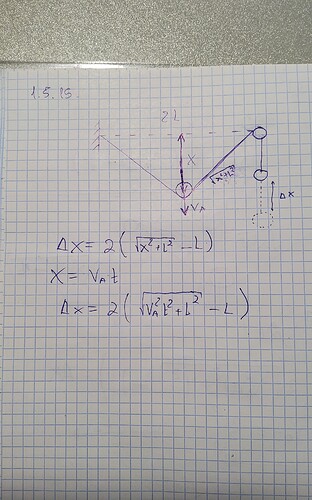 1.5.15.
2L
X
√x²+L²
Δx
V_A
Δx = 2(√x²+L² - L)
X = V_A t
Δx = 2(√V_A²t²+L² - L)